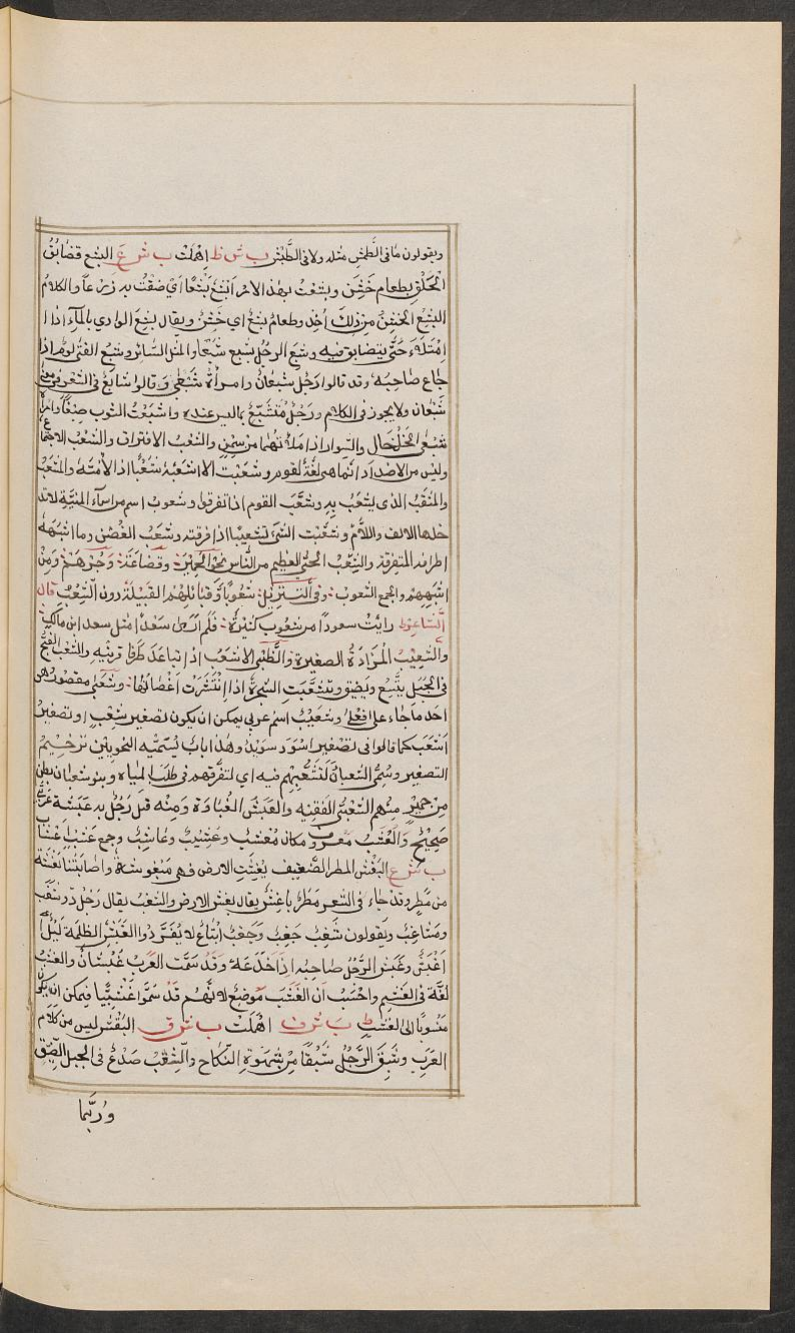 ويقولون ما في الطمش مثله ولا في الطبش ب ش ظ اهملت ب ش ع البشع تضايق
الحلق بطعام خشن وبشعت بهذا الامر ابشع بشعا اي ضقت به زرعا والكلام
البشع الخشن من ذلك اخذ وطعام بشع اي خشن ويقال بشع الوادي بالمآء اذا
امتلاء حتى يتضايق فيه وشبع الرجل يشبع شبعا والمثل السائر وشبع الفتى لوم اذا
جاع صاحبه وقد قالوا رجل شبعان وامراة شبعى وقالوا شابع في الشعر في معنى
شبعان ولا يجوز في الكلام ورجل متشبع بما ليس عنده واشبعت الثوب صبغا وامراة
شبعى الخلخال والسوار اذا ملاتهما من سمن والشعب الافتراق والشعب الاجتماع
وليس من الاضداد انما هي لغة لقوم وشعبت الا اشعبه شعبا اذا لامته والمشعب
والمثقب الذي يشعب به وشعب القوم اذا تفرقوا وشعوب اسم من اسمآء المنية لا تد
خلها الالف واللام وشعبت الشئ تشعيبا اذا فرقته وشعب الغصن وما اشبهه
اطرافه المتفرقة والشعب الحي العظيم من الناس نحو حمير وقضاعة وجرهم ومن
اشبههم والجمع الشعوب وفي التنزيل شعوبا وقبائل فهم القبيلة دون الشعب قال
الشاعر ط رايت سعودا من شعوب كثيرة فلم ار سعدا مثل سعد ابن مالك
والشعيب المزادة الصغيرة والظبي الاشعب اذا تباعد طرفا قرنيه والشعب الفتح
في الجبل يتسع ويضيق وتشعبت الشجرة اذا انتشرت اغصانها وشعبى مقصور وهو
احد ما جاء على فعلى وشعيب اسم عربي يمكن ان يكون تصغير شعب او تصغير
اشعب كما قالوا في تصغير اسود سويد وهذا باب يسميه النحويين ترخيم
التصغير وسمي شعبان لتشعبهم فيه اي لتفرقهم في طلب المياه وبنو شعبان بطن
من حمير منهم الشعبي الفقيه والعبش الغباوة ومنه قيل رجل به عبشة عربي
صحيح والعشب معروف مكان معشب وعشيب وعاشب وجمع عشب اعشاب
ب ش غ البغش المطر الضعيف بغشت الارض فهي مبغوشة واصابتنا بغشة
من مطر وقد جاء في الشعر مطر باغش يقال بغش الارض والشغب يقال رجل ذو شغب
ومشاغب ويقولون شغب جغب وجغب اتباع لا يفرد والغبش الظلمة ليل
اغبش وغبش الرجل صاحبه اذا خدعه وقد سمت العرب غبشان والغشب
لغة في الغشم واحسب ان الغشب موضع لانهم قد سموا غشبيا فيمكن ان يكون
منسوبا الى الغشب ب ش ف اهملت ب ش ق البقش ليس من كلام
العرب وشبق الرجل شبقا من شهوة النكاح والشقب صدع في الجبل الضيق
وربما